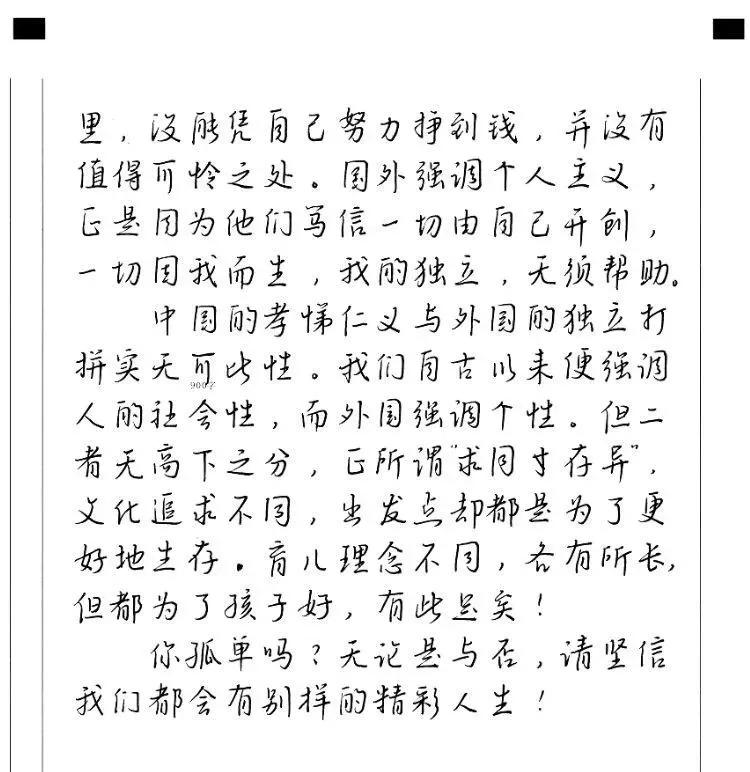 里，没能凭自己努力挣到钱，并没有
值得可怜之处。国外强调个人主义，
正是因为他们笃信一切由自己开创，
一切因我而生，我的独立，无须帮助。
中国的孝悌仁义与外国的独立打
拼实无可比性。我们自古以来便强调
900字
人的社会性，而外国强调个性。但二
者无高下之分，正所谓"求同寸存异"，
文化追求不同，出发点却都是为了更
好地生存。育儿理念不同，各有所长，
但都为了孩子好，有此足矣！
你孤单吗？无论是与否，请坚信
我们都会有别样的精彩人生！